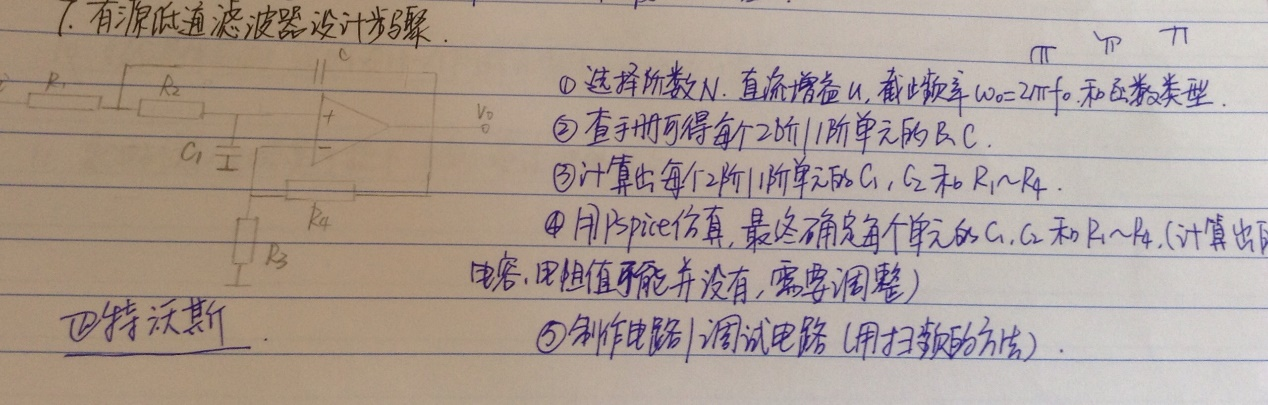 7. 有源低通滤波器设计步骤.
π π π
R1 R2 C
C1
+
-
V0
R4
R3
① 选择阶数N. 直流增益u, 截止频率ω0=2πf0. 和函数类型.
② 查手册可得每个2阶/1阶单元的B、C.
③ 计算出每个2阶/1阶单元的C1, C2 和 R1~R4.
④ 用Pspice仿真, 最终确定每个单元的C1, C2 和 R1~R4, (计算出的
电容, 电阻值可能并没有, 需要调整)
⑤ 制作电路/调试电路 (用扫频的方法).
巴特沃斯.